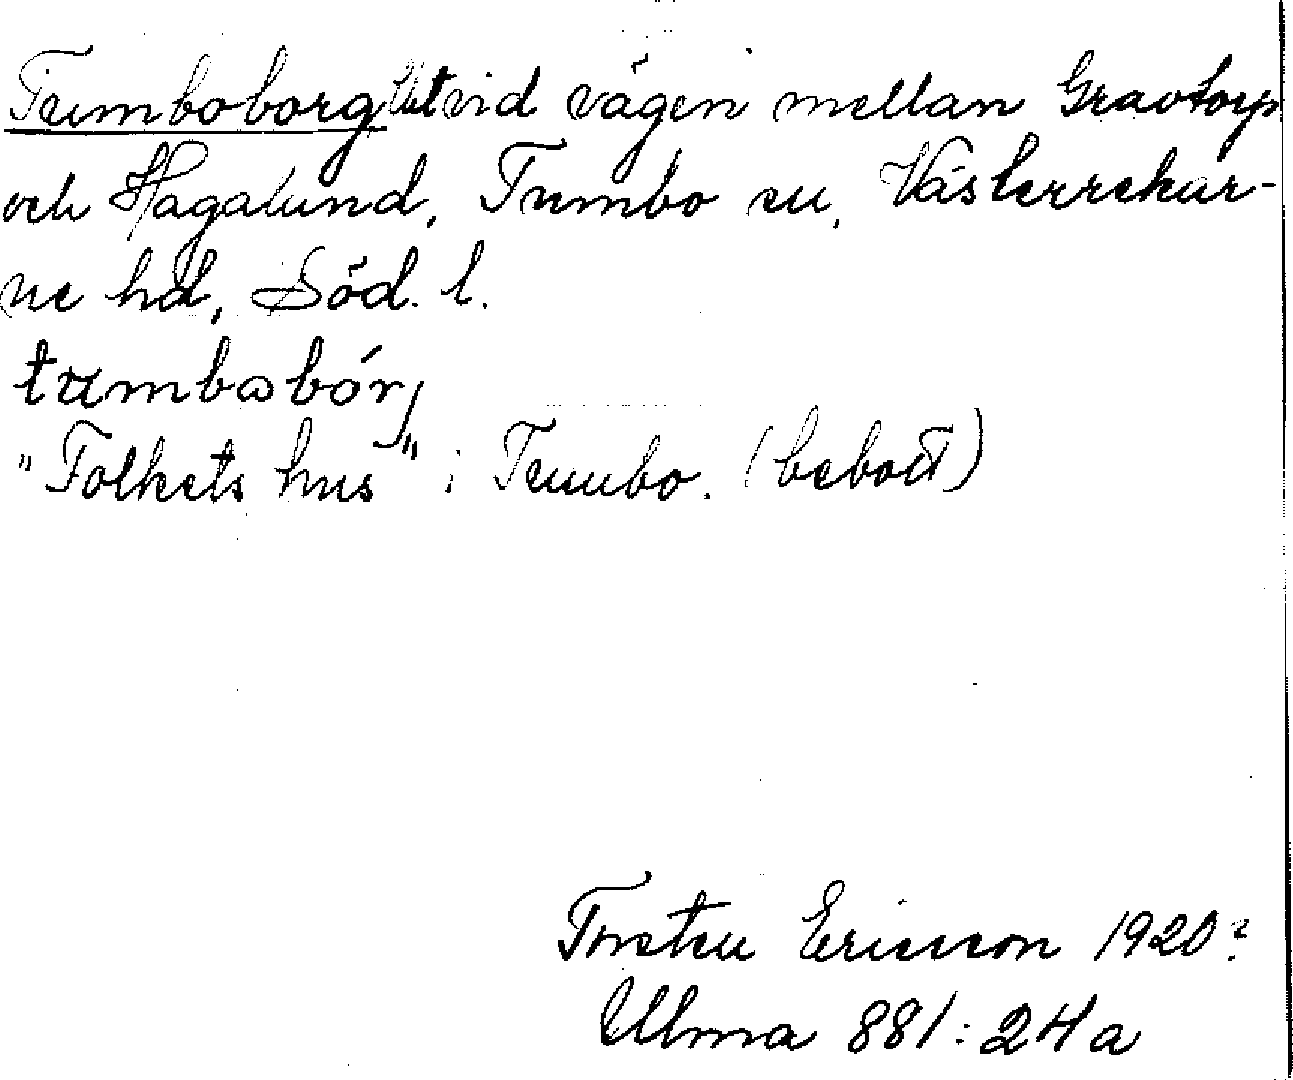 Tumboborg Ut vid vägen mellan Gravtorp
och Hagalund, Tumbo sn, Västerrekar-
ne hd, Söd. l.
"Folkets hus" i Tumbo. (bebott)
Torsten Ericsson 1920?
Ulma 881:24a